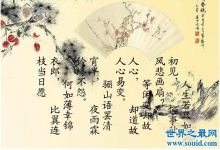 人生若只如
初见，何事秋
风悲画扇。
等闲变却故
人心，却道故
人心易变。
骊山语罢清
宵半，夜雨霖
铃终不怨。
何如薄幸锦
衣郎，比翼连
枝当日愿
世界之最网
www.souid.com